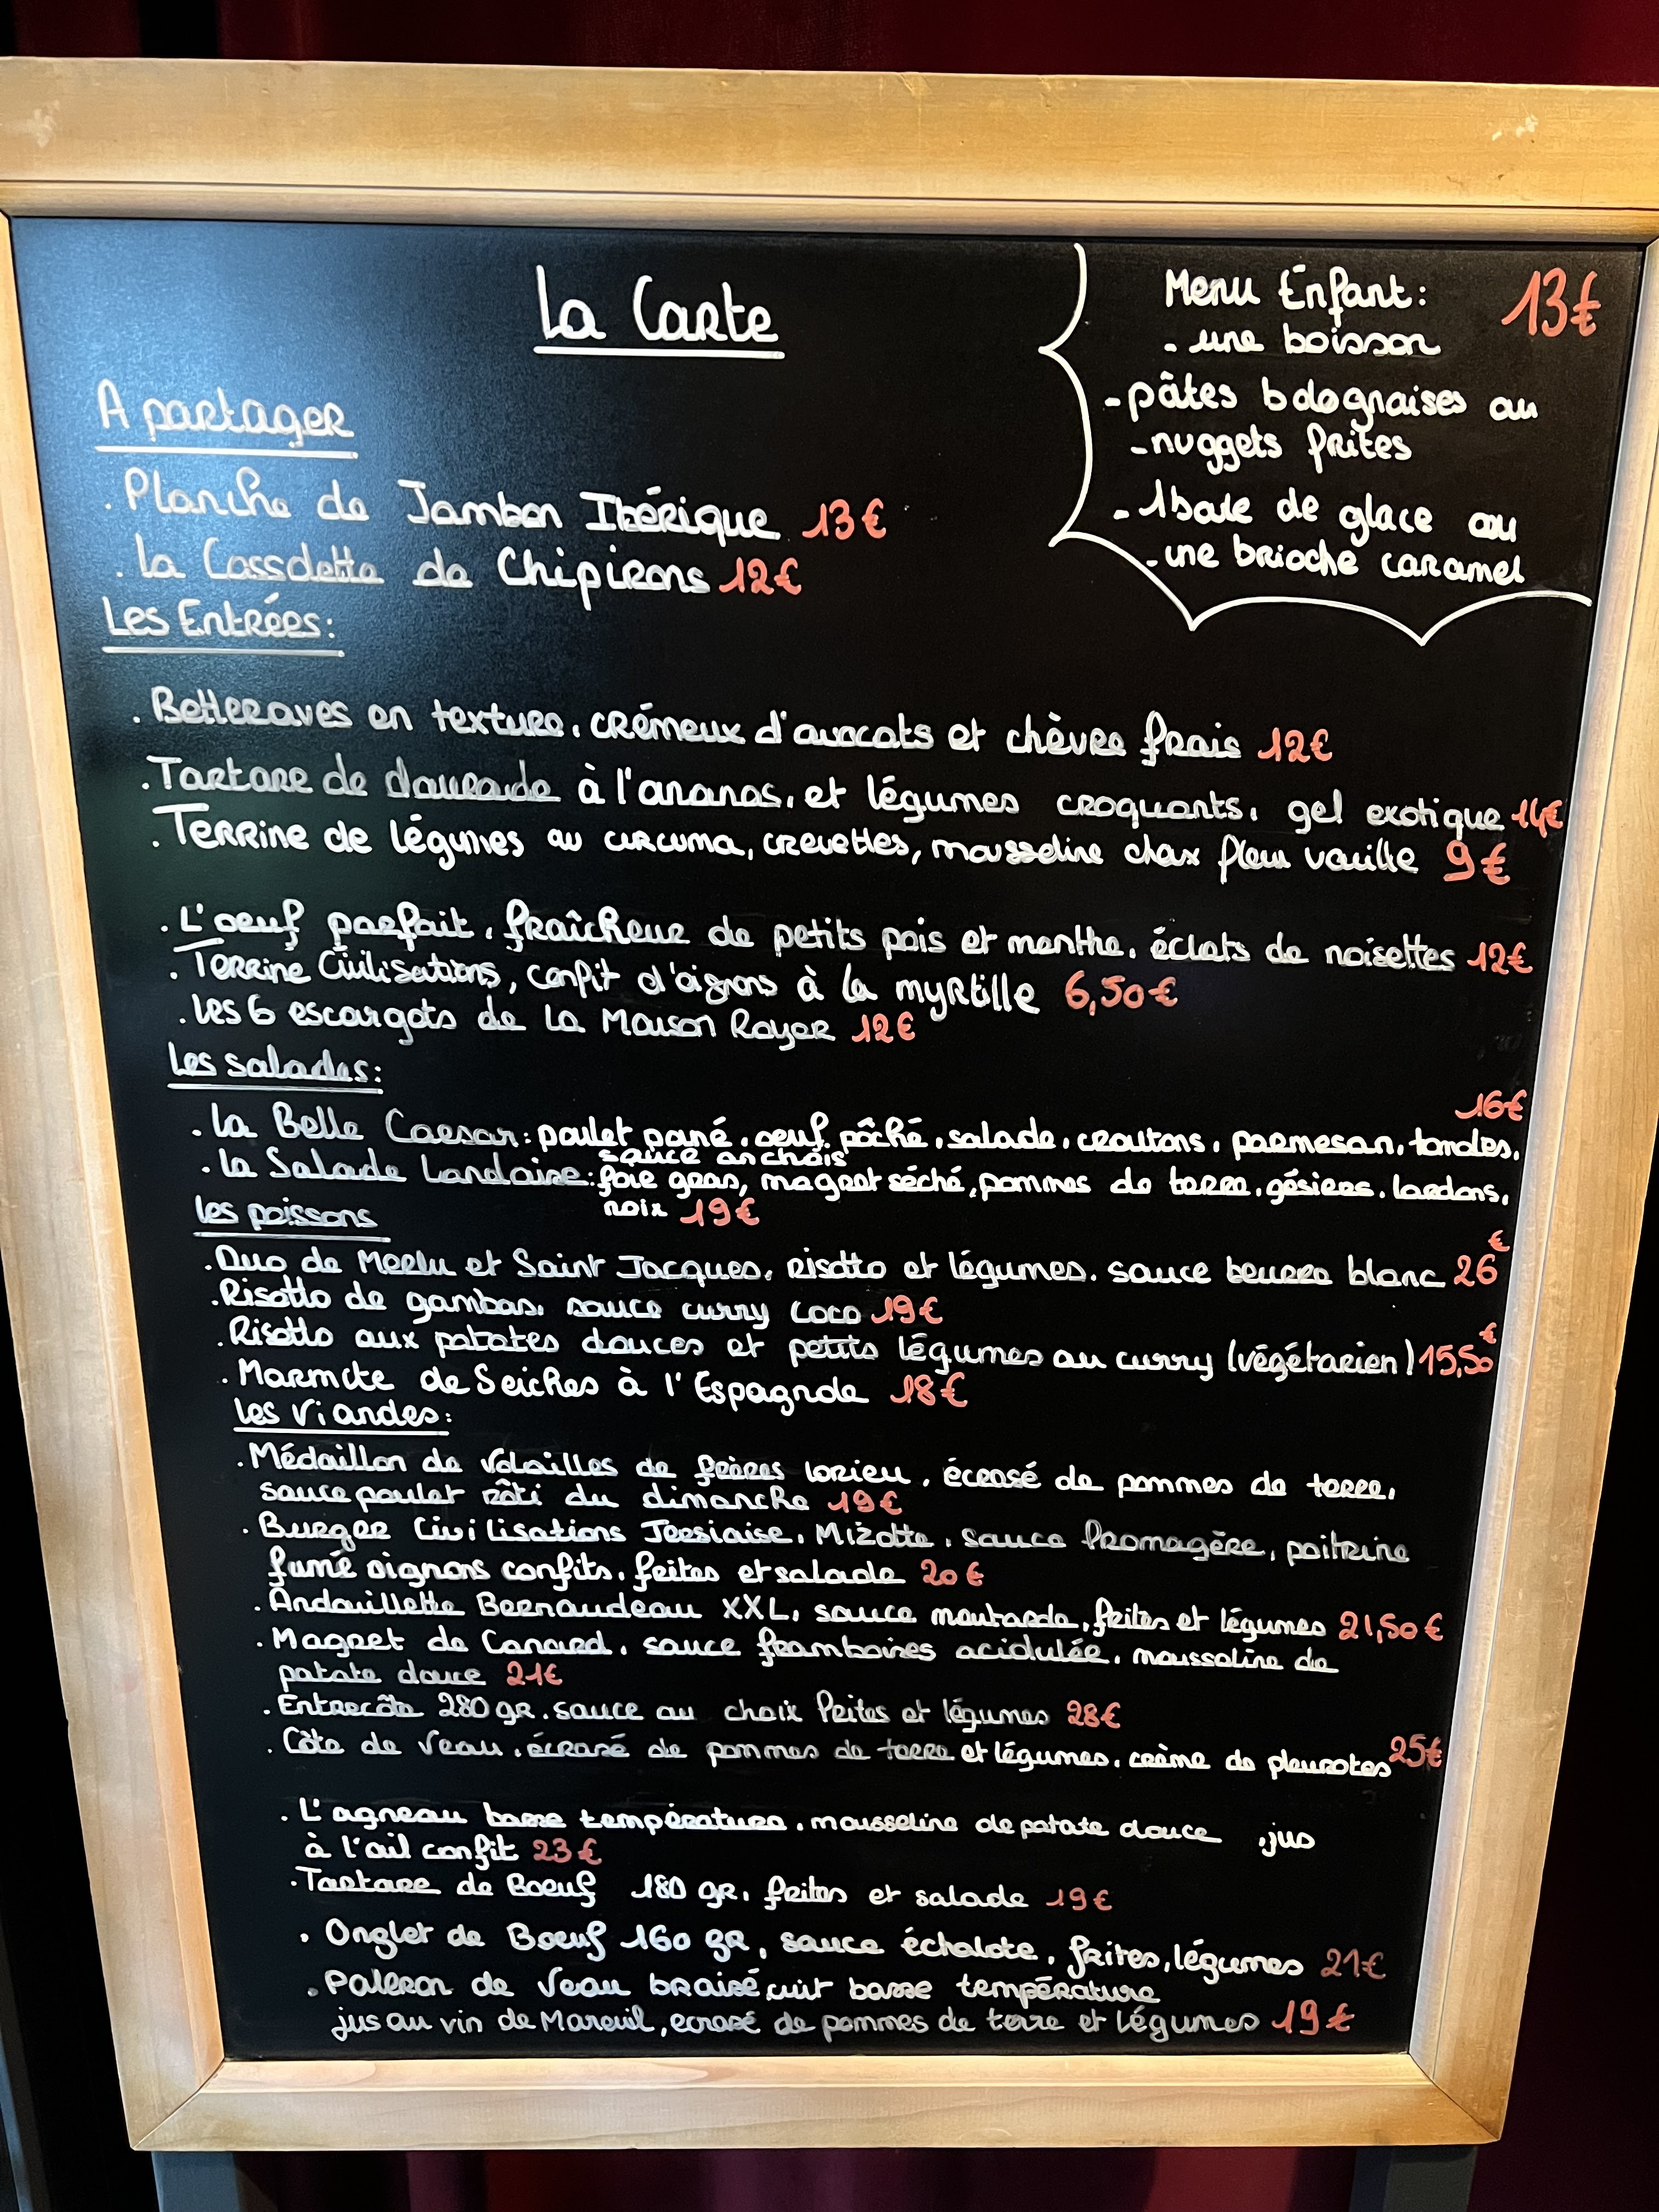 La Carte
Menu Enfant: 13€
- une boisson
- pâtes bolognaises ou
- nuggets frites
- 1 boule de glace ou
- une brioche caramel
A partager
. Planche de Jambon Ibérique 13€
. La Cassolette de Chipirons 12€
Les Entrées:
. Betteraves en texture, crémeux d'avocats et chèvre frais 12€
. Tartare de daurade à l'ananas, et légumes croquants, gel exotique 14€
. Terrine de légumes au curcuma, crevettes, mousseline choux fleur vanille 9€
. L'oeuf parfait, fraîcheur de petits pois et menthe, éclats de noisettes 12€
. Terrine Civilisations, confit d'oignons à la myrtille 6,50€
. Les 6 escargots de La Maison Royer 12€
Les salades:
. La Belle Caesar: poulet pané, oeuf pôché, salade, croutons, parmesan, tomates, 16€
sauce anchois
. La Salade Landaise: foie gras, magret séché, pommes de terre, gésiers, lardons,
noix 19€
Les poissons
. Duo de Merlu et Saint Jacques, risotto et légumes, sauce beurre blanc 26€
. Risotto de gambas, sauce curry coco 19€
. Risotto aux patates douces et petits légumes au curry (végétarien) 15,50€
. Marmite de Seiches à l'Espagnole 18€
Les Viandes:
. Médaillon de volailles de frères Lorieu, écrasé de pommes de terre,
sauce poulet rôti du dimanche 19€
. Burger Civilisations Jersiaise, Mizotte, sauce fromagère, poitrine
fumé oignons confits, frites et salade 20€
. Andouillette Bernaudeau XXL, sauce moutarde, frites et légumes 21,50€
. Magret de Canard, sauce framboises acidulée, mousseline de
patate douce 21€
. Entrecôte 280 gr, sauce au choix frites et légumes 28€
. Côte de Veau, écrasé de pommes de terre et légumes, crème de pleurotes 25€
. L'agneau basse température, mousseline de patate douce, jus
à l'ail confit 23€
. Tartare de Boeuf 180 gr, frites et salade 19€
. Onglet de Boeuf 160 gr, sauce échalote, frites, légumes 21€
. Paleron de Veau braisé, cuit basse température
jus au vin de Mareuil, ecrasé de pommes de terre et légumes 19€